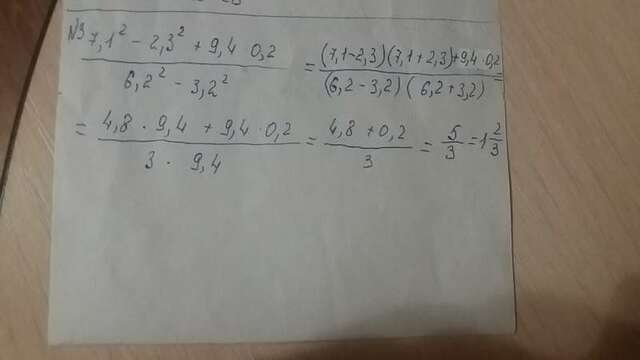 №3 (7,1² - 2,3² + 9,4 · 0,2) / (6,2² - 3,2²) = ((7,1-2,3)(7,1+2,3)+9,4·0,2) / ((6,2-3,2)(6,2+3,2)) =
= (4,8 · 9,4 + 9,4 · 0,2) / (3 · 9,4) = (4,8 + 0,2) / 3 = 5/3 = 1 2/3